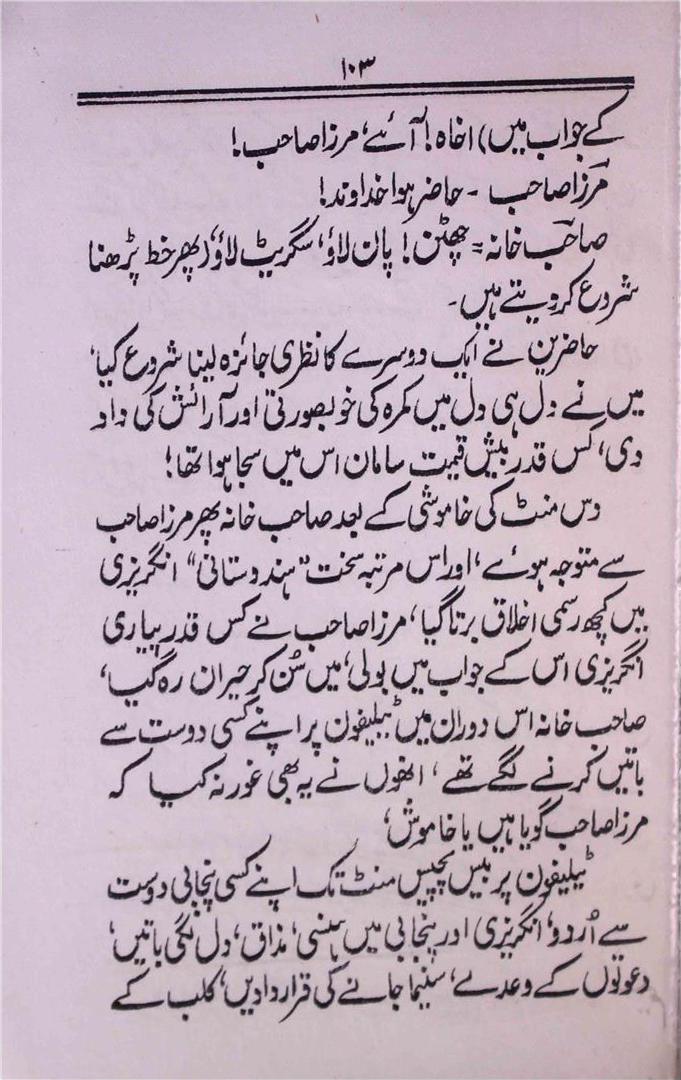 ۱۰۳
کے جواب میں) اخاہ! آئے، مرزا صاحب!
مرزا صاحب - حاضر ہوا خداوند!
صاحب خانہ = چھٹن! پان لاؤ، سگریٹ لاؤ، (پھر خط پڑھنا
شروع کر دیتے ہیں۔
حاضرین نے ایک دوسرے کا نظری جائزہ لینا شروع کیا،
میں نے دل ہی دل میں کمرہ کی خوبصورتی اور آرائش کی داد
دی، کس قدر بیش قیمت سامان اس میں سجا ہوا تھا!
دس منٹ کی خاموشی کے بعد صاحب خانہ پھر مرزا صاحب
سے متوجہ ہوئے، اور اس مرتبہ سخت "ہندوستانی" انگریزی
میں کچھ رسمی اخلاق برتا گیا، مرزا صاحب نے کس قدر پیاری
انگریزی اس کے جواب میں بولی، میں سُن کر حیران رہ گیا،
صاحب خانہ اس دوران میں ٹیلیفون پر اپنے کسی دوست سے
باتیں کرنے لگے تھے، انھوں نے یہ بھی غور نہ کیا کہ
مرزا صاحب گویا ہیں یا خاموش،
ٹیلیفون پر بیس پچیس منٹ تک اپنے کسی پنجابی دوست
سے اُردو، انگریزی اور پنجابی میں ہنسی، مذاق، دل لگی باتیں،
دعوتوں کے وعدے، سنیما جانے کی قراردادیں، کلب کے